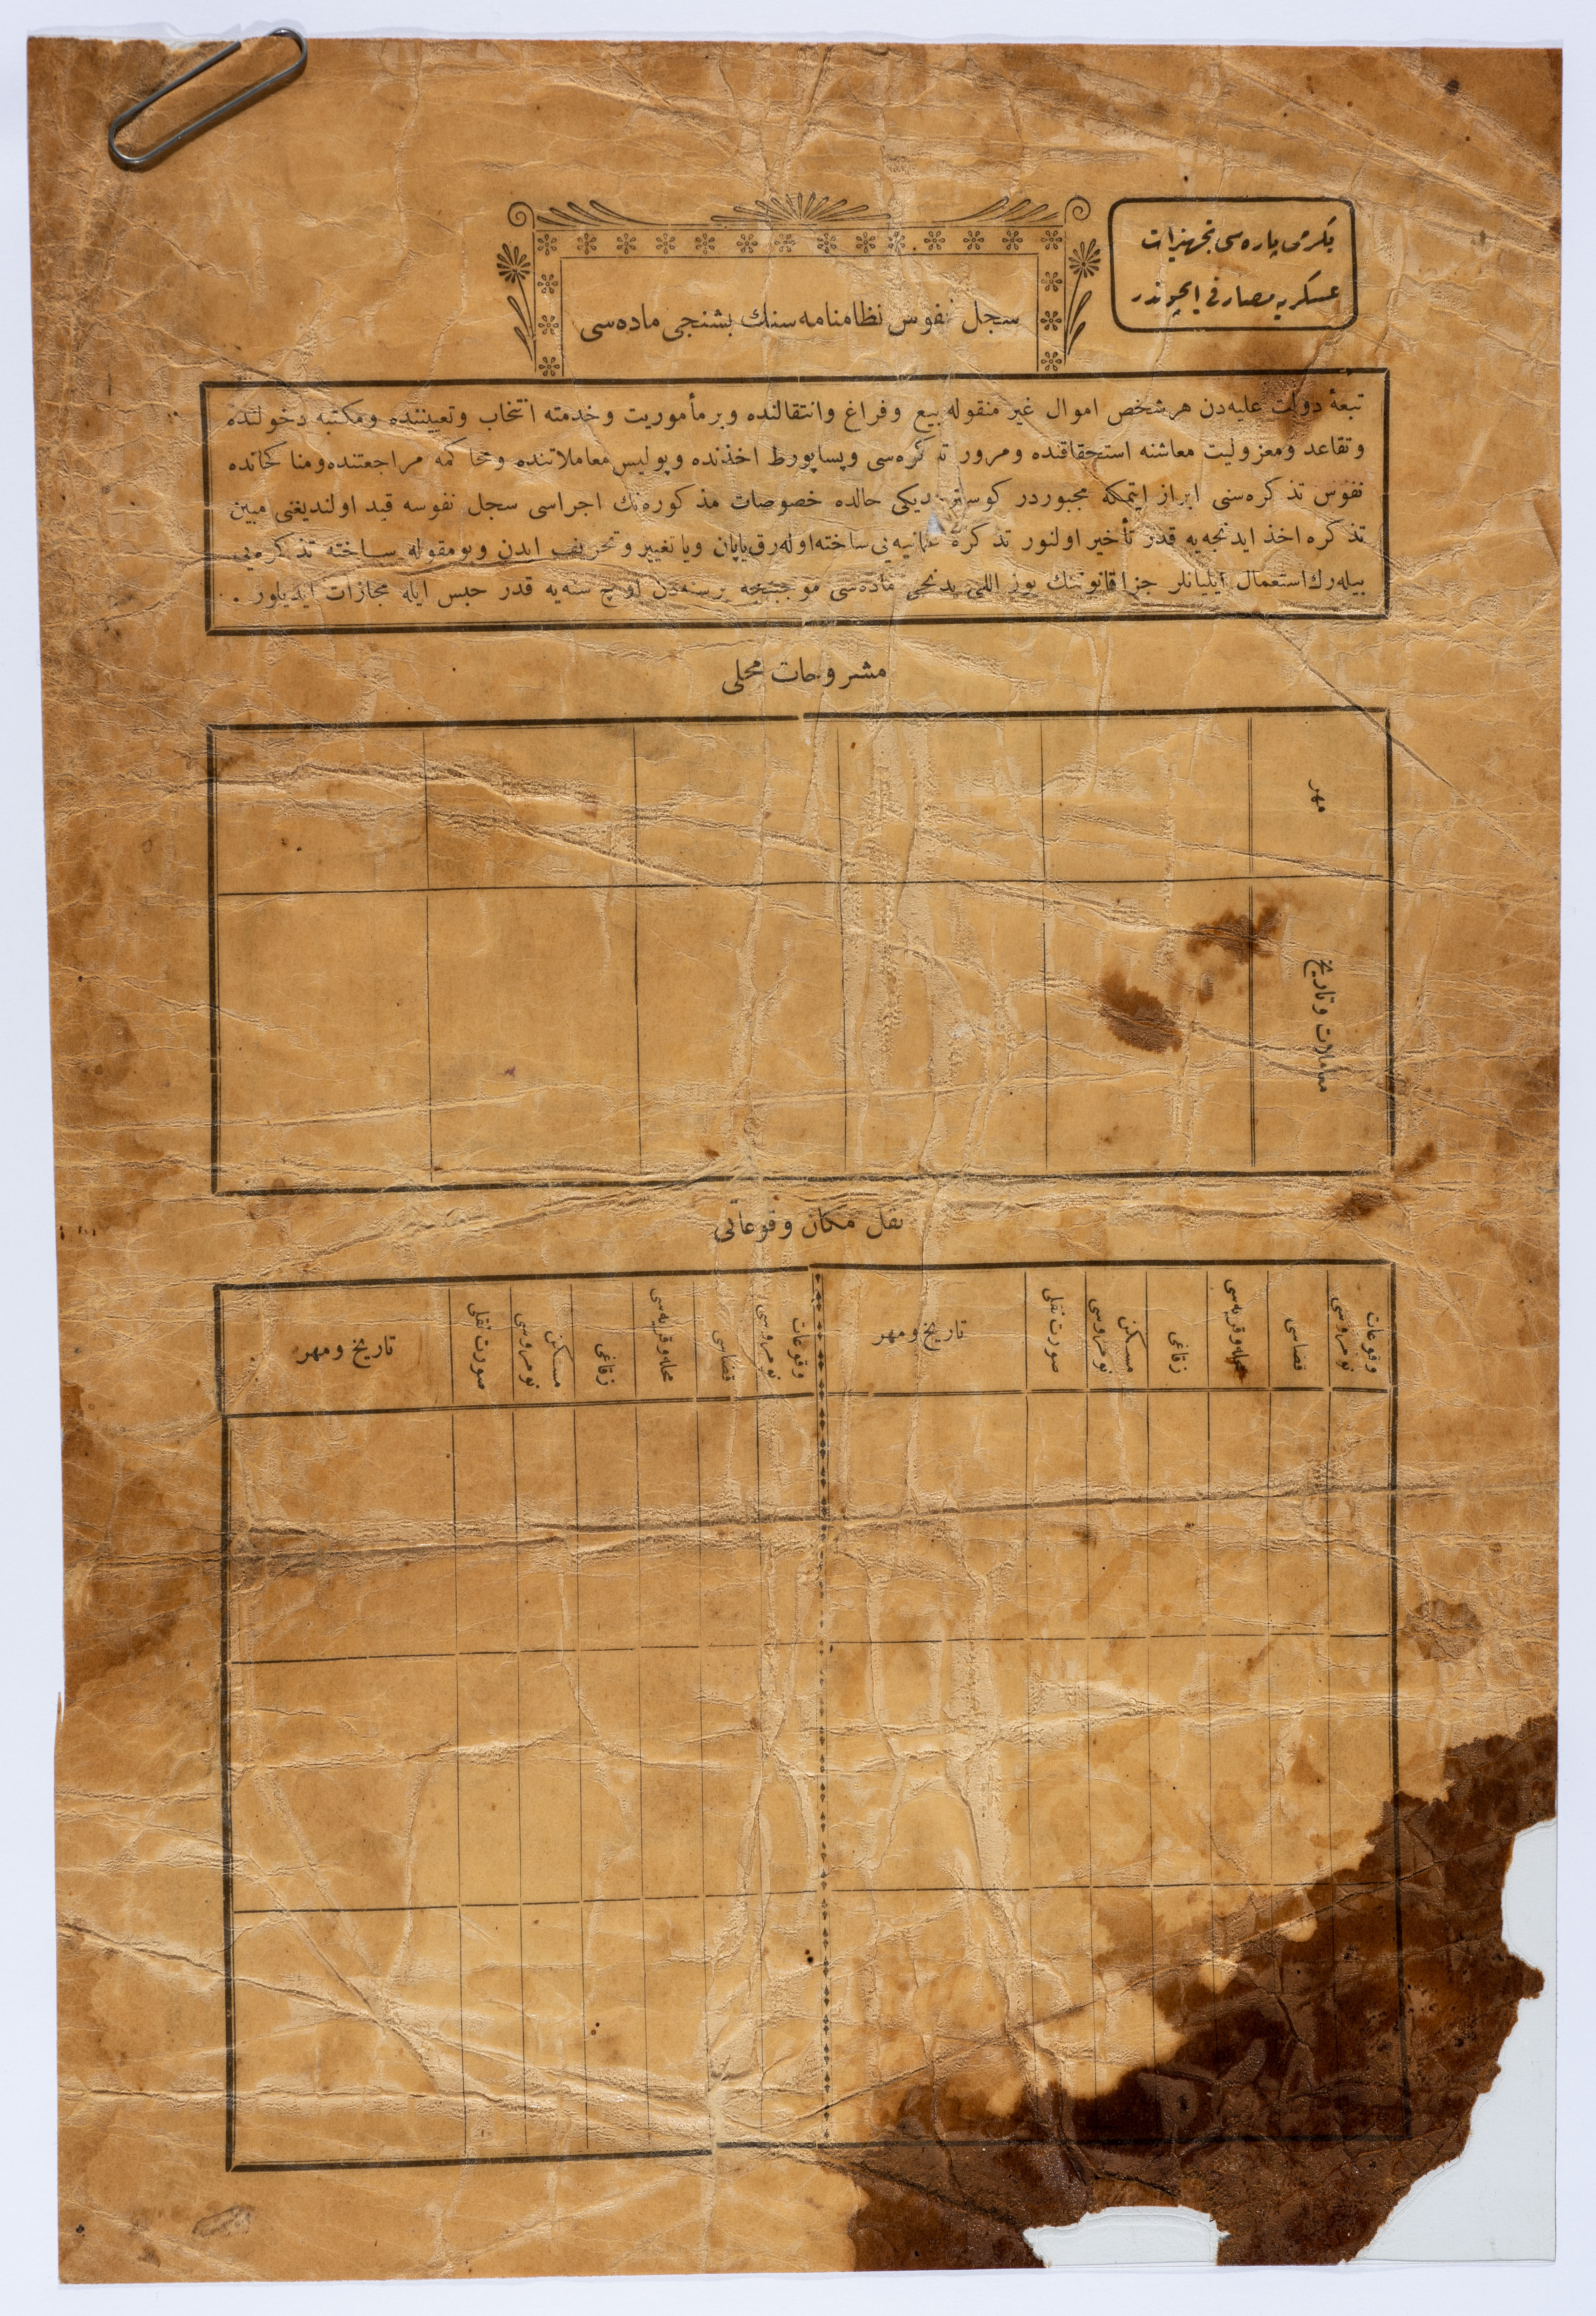 یكرمی پاره‌سی تجهیزات
عسكریه مصارفی ایچوندر
سجل نفوس نظامنامه‌سنك بشنجی ماده‌سی
تبعهٔ دولت علیه‌دن هر شخص اموال غیر منقوله بیع و فراغ وانتقالنده وبر مأموریت وخدمته انتخاب وتعییننده ومكتبه دخولنده
وتقاعد ومعزولیت معاشنه استحقاقنده ومرور تذكره‌سی وپساپورط اخذنده وپولیس معاملاتنده ومحاكمه مراجعتنده ومناكحاتده
نفوس تذكره‌سنی ابراز ایتمكه مجبوردر كوسترمدیكی حالده خصوصات مذكوره‌نك اجراسی سجل نفوسه قید اولندیغنی مبین
تذكره اخذ ایدنجه‌یه قدر تأخیر اولنور تذكرهٔ عثمانیه‌یی ساخته اوله‌رق یاپان ویا تغییر وتحریف ایدن وبومقوله ساخته تذكره‌یی
بیله‌رك استعمال ایلیانلر جزا قانوننك یوز اللی یدنجی ماده‌سی موجبنجه برسنه‌دن اوچ سنه‌یه قدر حبس ایله مجازات ایدیلور .
مشروحات محلی
مهر
معاملات وتاریخ
نقل مكان وقوعاتی
وقوعات نومروسی
قضاسی
محله وقریه‌سی
زقاغی
مسكن نومروسی
صورت نقلی
تاریخ ومهر
وقوعات نومروسی
قضاسی
محله وقریه‌سی
زقاغی
مسكن نومروسی
صورت نقلی
تاریخ ومهر